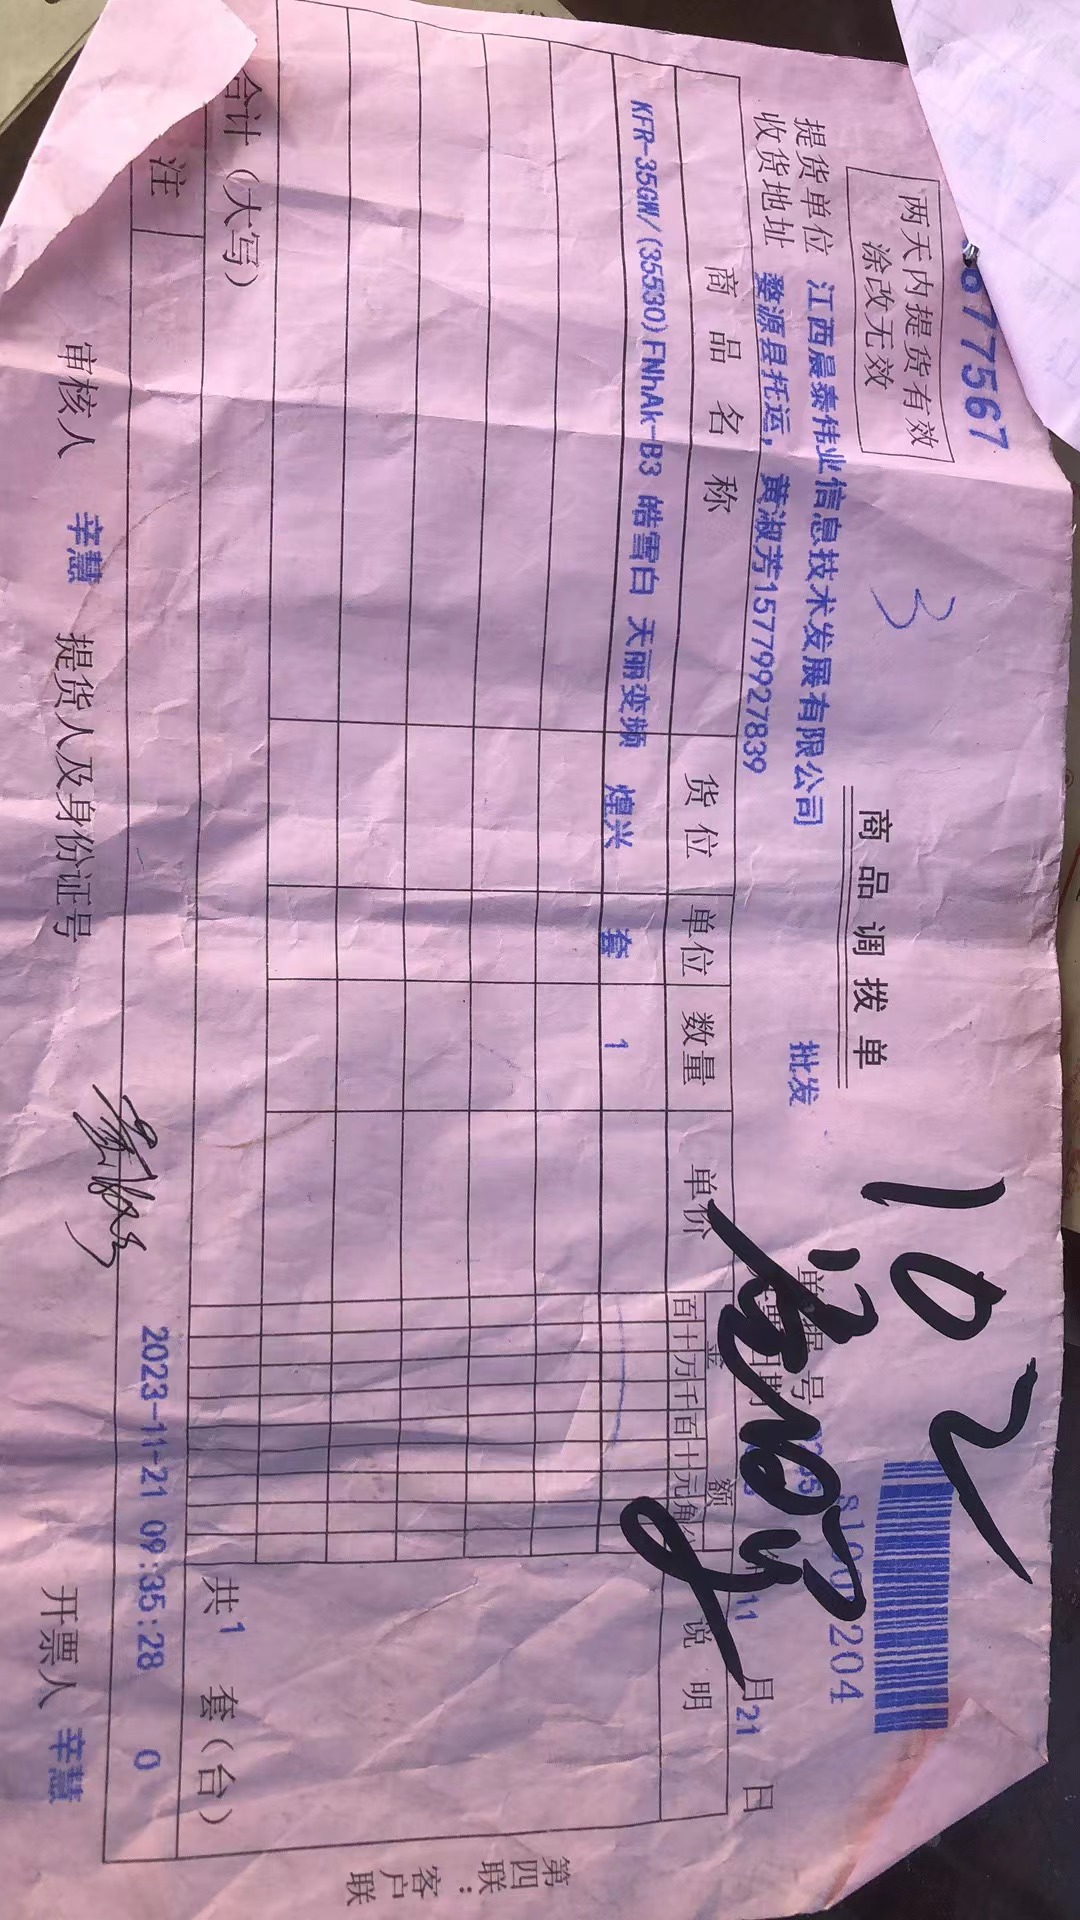 77567
两天内提货有效
涂改无效
3
商品调拨单
批发
102
204
提货单位 江西晨泰伟业信息技术发展有限公司
收货地址 婺源县托运，黄淑芳15779927839
11月21日
商品名称 货位 单位 数量 单价 金额 说明
百十万千百十元角分
KFR-35GW/(35530)FNhAk-B3 皓雪白 天丽变频 煌兴 套 1
合计（大写） 共1 套（台）
注
2023-11-21 09:35:28 0
审核人 辛慧 提货人及身份证号 开票人 辛慧
第四联：客户联